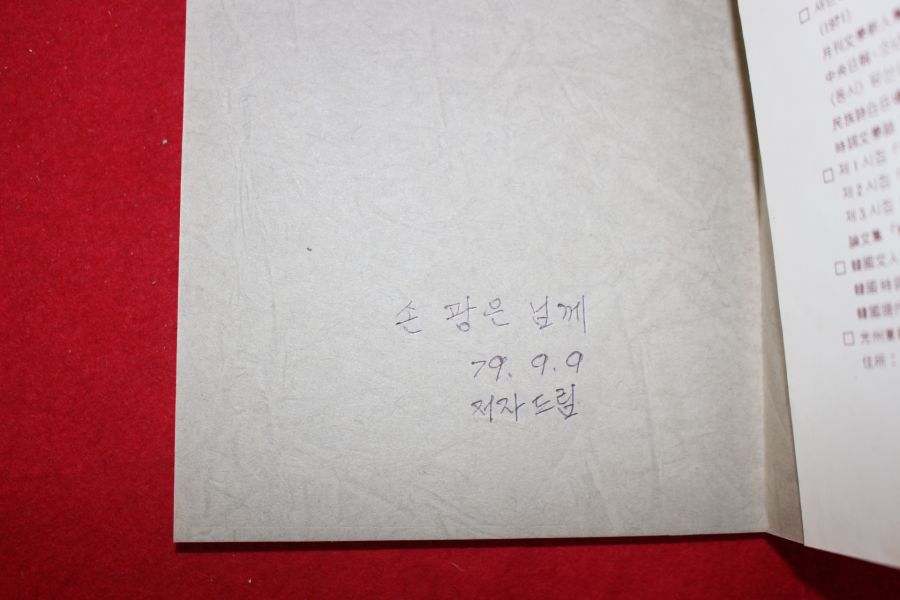 손 광은 님께
79. 9. 9
저자 드림
(1971)
月刊文學新人
中央日報·
(동시)
民族詩
時調文學
□ 제1시집
제2시집
제3시집
論文集「
□ 韓國文人
韓國時調
韓國現代
□ 光州東
住所 :